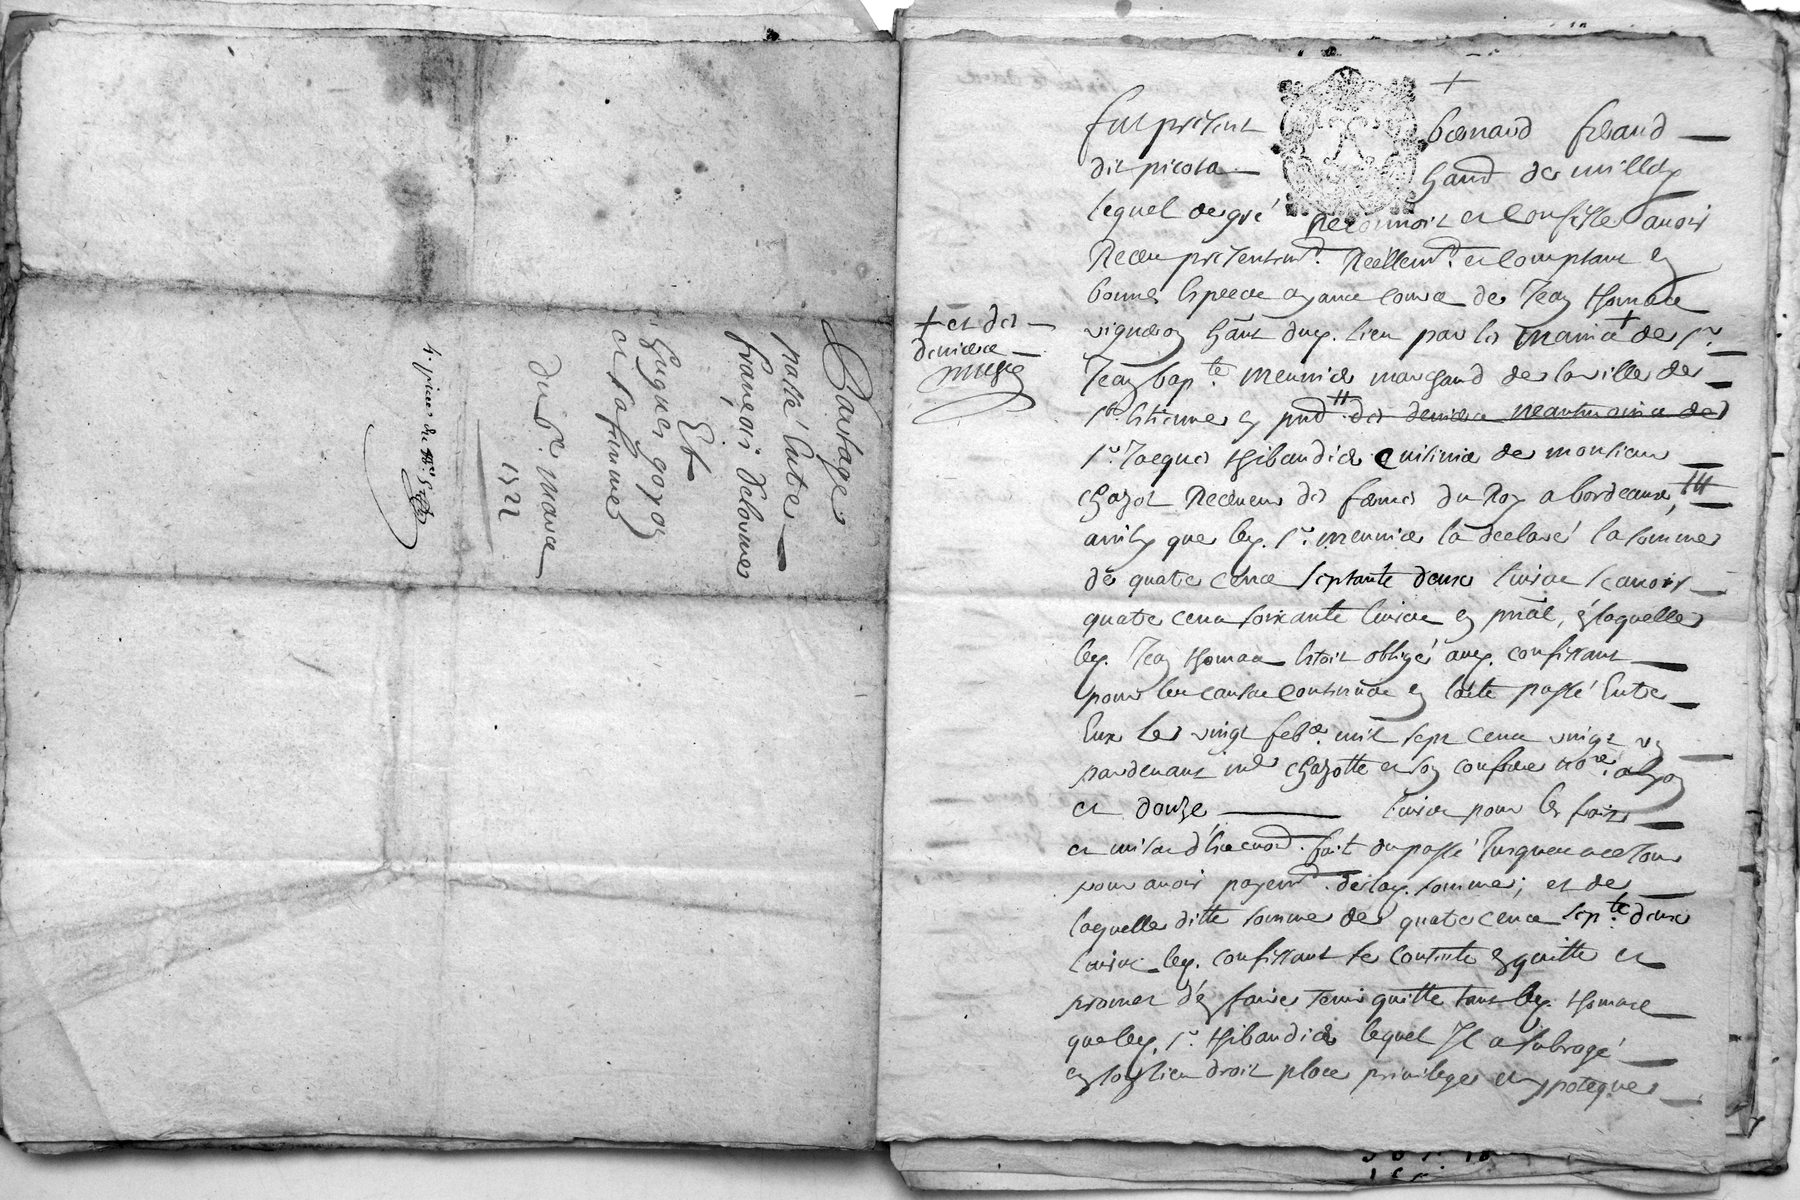 Partage
passé Entre
françois delorme
Et
hugues goyon
et sa femme
du 6e. mars
1722
4. pieces du
fut présent bernard
dit picota hant de millery
lequel de gré reconnoit et confesse avoir
Receu présentemt. Réellemt. et comptant en
bonnes espece ayant cours de Jean thomas
vigneron hant dud. lieu par les mains + de sr.
Jean bapte. meunier marchand de la ville de
st. Estienne en
+ et des
deniers
sr. Jacques thibaudier de monsieur
chazot Receveur des fermes du Roy a bordeaux,
ainsy que led. sr. meunier la declaré la somme
de quatre cent septante deux livres scavoir
quatre cent soixante livres en pnal, en laquelle
led. Jean thomas Estoit obligé aud. confessant
pour les causes contenues en lacte passé Entre
Eux le vingt feb. mil sept cent vingt un
pardevant me chazotte et son confrere nore. a lyon
et douze livres pour les frais
et mises d'exécuon. fait du passé Jusques a ce Jour
pour avoir payemt. de lad. somme; et de
laquelle ditte somme de quatre cent septte. deux
livres led. confessant se contente en quitte et
promet d'en faire tenir quitte tant led. thomas
que led. sr. thibaudier lequel Il a subrogé
en son lieu droit place privileges et ypoteques